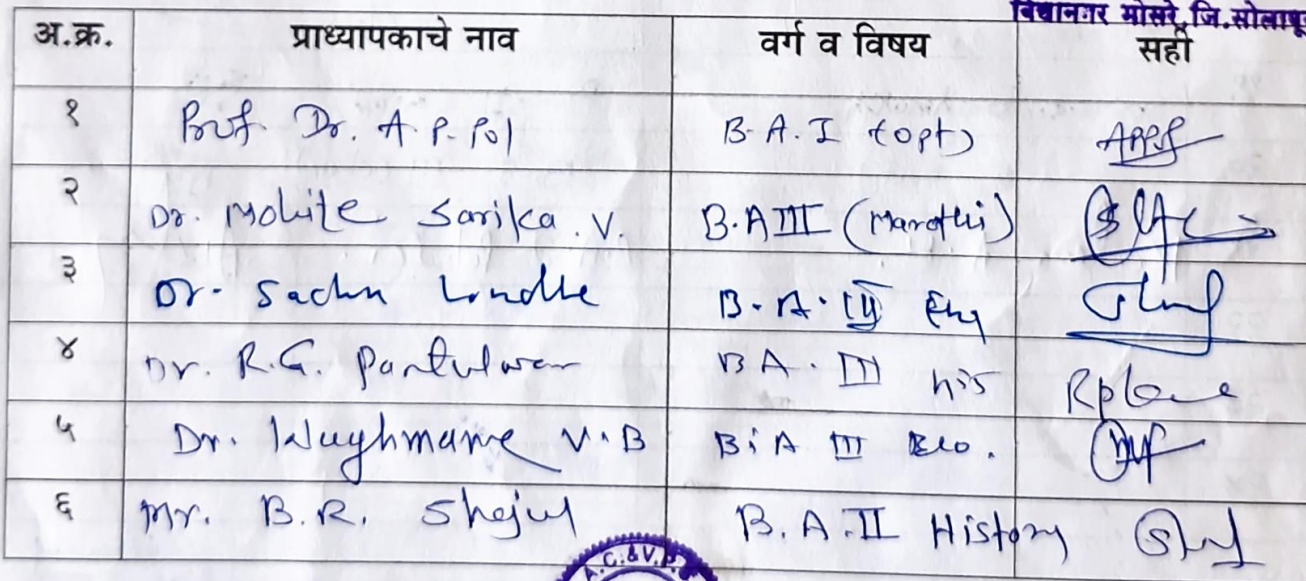 विद्यानगर मोसरे, जि.सोलापू
अ.क्र. प्राध्यापकाचे नाव वर्ग व विषय सही
१ Prof Dr. A. P. Pol B.A.I (opt)
२ Dr. Mohite Sarika. V. B.A III (Marathi)
३ Dr. Sachin Londhe B.A. III Eng
४ Dr. R.G. Pantulwar BA. III His
५ Dr. Waghmare V.B B.A III Eco.
६ Mr. B.R. Shejul B.A.II History
A.C.&V.P.